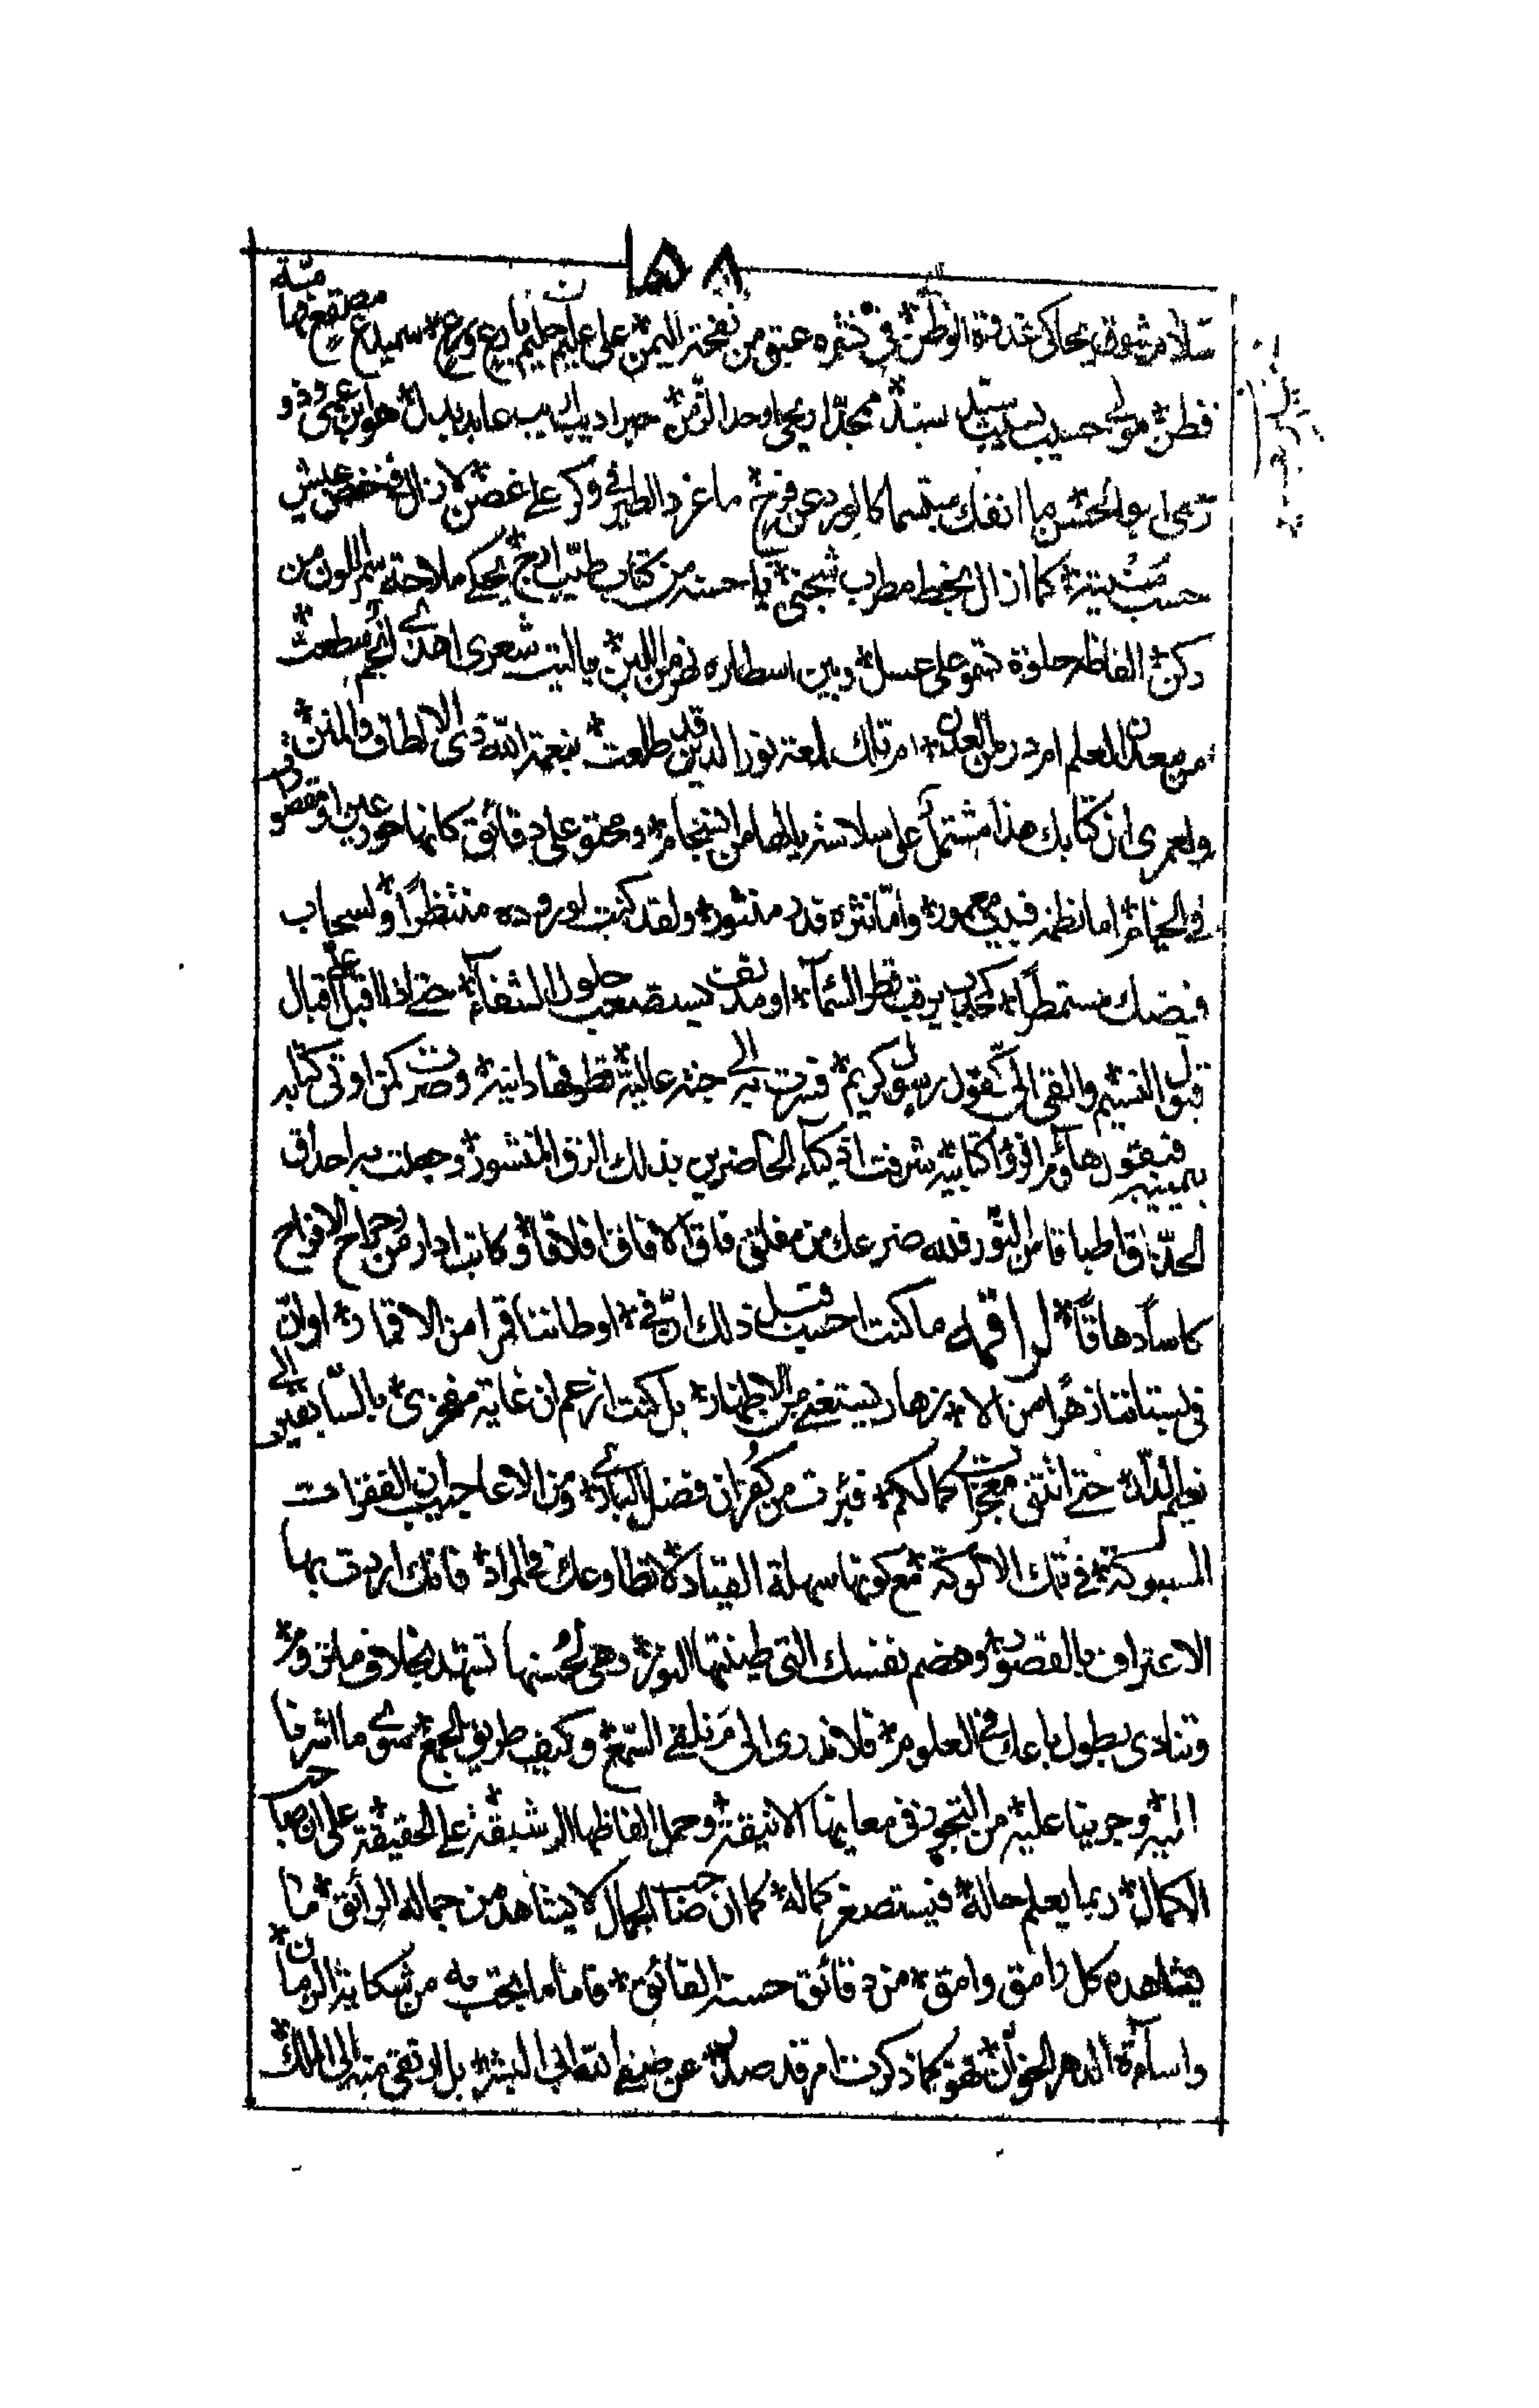 ١٥٨
سلام مشوق يحاكي غدقة الوطن * في نثره عبق من نفحة اليمن * على عليم حليم بارع ورع * سميدع مصقع
فطن * مولى حسيب نسيب سيد سند * ممجد اريحي اوحد الزمن * حبر اديب لبيب عابد بدل * هو ابن عمي وذو
رحمي ابو الحسن ما انفك مبتسما كالورد عن فرح * ما غرد الطير في وكر على غصن * لا زال في خفض عيش
حسب منيته * كما ازال بخط مطرب شجني * يا حسنه من كتاب طيب ارج * يحكي ملاحة سمر اللون من
دكن * الفاظه حلوة تنمو على عسل * وبين اسطاره نهر من اللبن * يا ليت شعري اهذي انجم سطعت *
من معدن العلم ام در من العدن * ام تلك لمعة نور الدين قد طلعت * بنعمة الله ذي الالطاف والمنن *
ولعمري ان كتابك هذا مشتمل على سلاسة يالها من انسجام * ومحتو على دقائق كانها حور عين مقصورات
في الخيام * اما نظمه فبديع معمور * واما نثره فدر منثور * ولقد كنت لوروده منتظرا * ولسحاب
فيضك مستمطرا * كجديب يرقب قطر السماء * او مدنف يستصعب حلول الشفاء * حتى اذا اقبل علي اقبال
قبول النسيم * والقي الي كقول رسول كريم * فسرت به الى جنة عالية * قطوفها دانية * وصرت كمن اوتي كتابه
بيمينه فيقول هاؤم اقرؤا كتابيه * شرفت اذكياء الحاضرين بذلك الرق المنشور * وجعلت به احداق
الحذاق اطباقا من النور * فلله ضرعك من مفلق فاق الافاق افلاقا * وكاتب ادار من راح الافراح
كاسا دهاقا * لراقمه ما كنت احسب قبل ذلك ان في * اوطاننا قمرا من الاقمار * او ان
في بستاننا زهرا من الا * زهار يستغني عن الاظهار * بل كنت ازعم ان غاية مفخري * بالسابقين الى
نعيم الدار * حتى اتتني معجزات كمالكم * فبرئت من كفران فضل الباري * ومن الاعاجيب ان الفقرات
المسبوكة * في تلك الالوكة * مع كونها سهلة القياد * لا تطاوعك في المراد * فانك اردت بها
الاعتراف بالقصور * وهضم نفسك التي طينتها النور * وهي لحسنها تشهد بخلاف ما تروم *
وتنادي بطول باعك في العلوم * فلا ندري الى من نلقي السمع * وكيف طريق الجمع * سوى ما اشرنا
اليه * وجرينا عليه * من التجوز في معانيها الانيقة * وحمل الفاظها الرشيقة * على الحقيقة * على ان صاحب
الكمال * ربما يعلم حاله * فيستصغر كماله * كما ان صاحب الجمال لا يشاهد من جماله الرائق * ما
يشاهده كل رامق وامق * من دقائق حسنه الفائق * فاما ما بحت به من شكاية الزمان *
واساءة الدهر الخوان * فهو كما ذكرت امر قد صدر * عن ضيم انتهى الى البشر * بل ارتقى منه الى الملك *